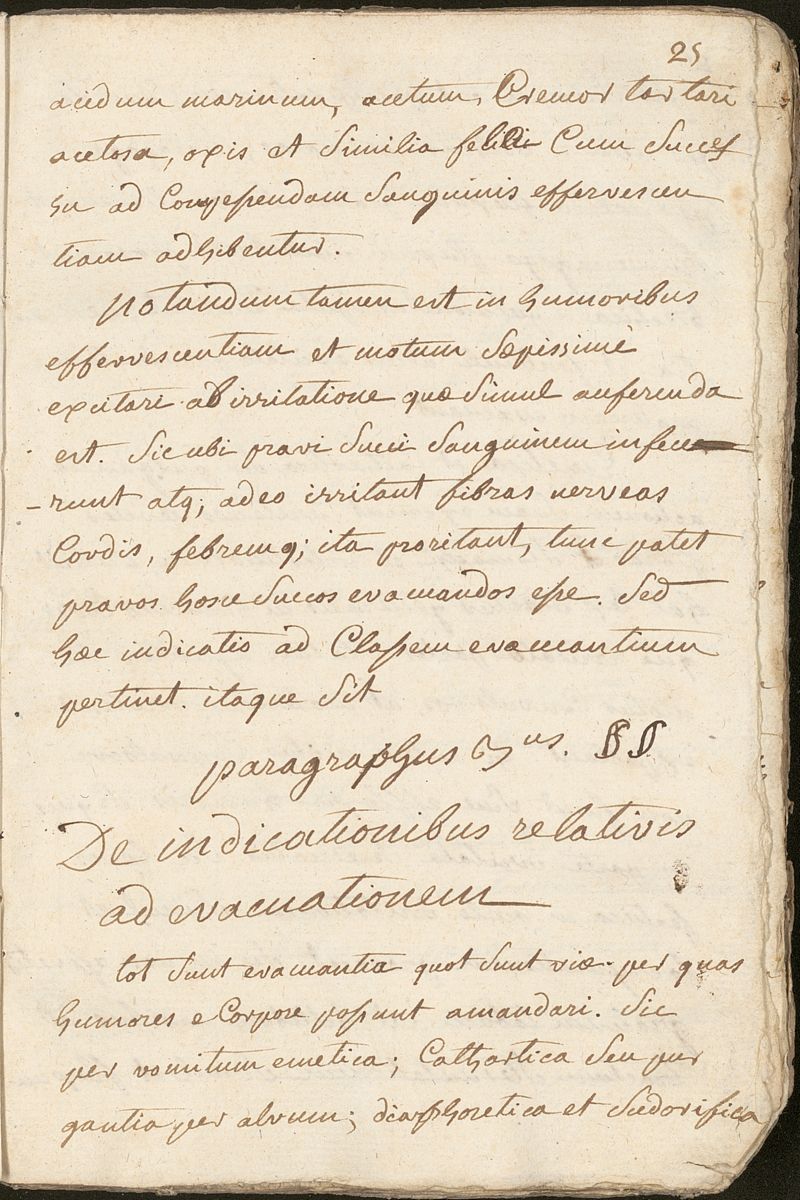 25
acidum marinum, acetum, Cremor tartari
acetosa, oxis et Similia felici Cum Succes
su ad Compescendam Sanguinis effervescen
tiam adhibentur.
Notandum tamen est in humoribus
effervescentiam et motum Sæpissimè
excitari ab irritatione quæ Simul auferenda
est. Sic ubi pravi Succi Sanguinem infece
-runt atq; adeo irritant fibras nerveas
Cordis, febremq; ita proritant, tunc patet
pravos hosce Succos evacuandos esse. Sed
hæc indicatio ad Classem evacuantium
pertinet. itaque Sit
paragraphus us. §§
De indicationibus relativis
ad evacuationem
tot Sunt evacuantia quot Sunt viæ per quas
humores e Corpore possunt amandari. Sic
per vomitum emetica; Cathartica Seu pur
gantia per alvum; diaphoretica et Sudorifica